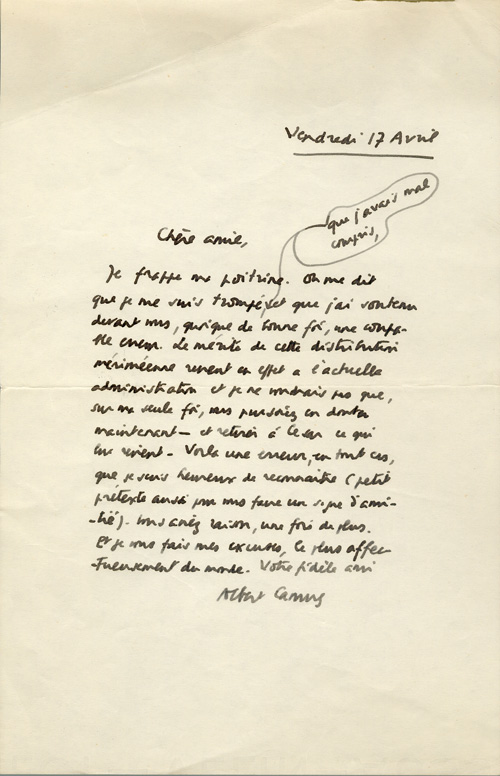 Vendredi 17 Avril
que j'avais mal
compris,
Chère amie,
Je frappe ma poitrine. On me dit
que je me suis trompé, et que j'ai soutenu
devant vous, quoique de bonne foi, une coupa-
ble erreur. Le mérite de cette distribution
mériméenne revient en effet à l'actuelle
administration et je ne voudrais pas que,
sur ma seule foi, vous puissiez en douter
maintenant — et retirer à César ce qui
lui revient. Voilà une erreur, en tout cas,
que je suis heureux de reconnaître (petit
prétexte aussi pour vous faire un signe d'ami-
-tié). Vous aviez raison, une fois de plus.
Et je vous fais mes excuses, le plus affec-
-tueusement du monde. Votre fidèle ami
Albert Camus